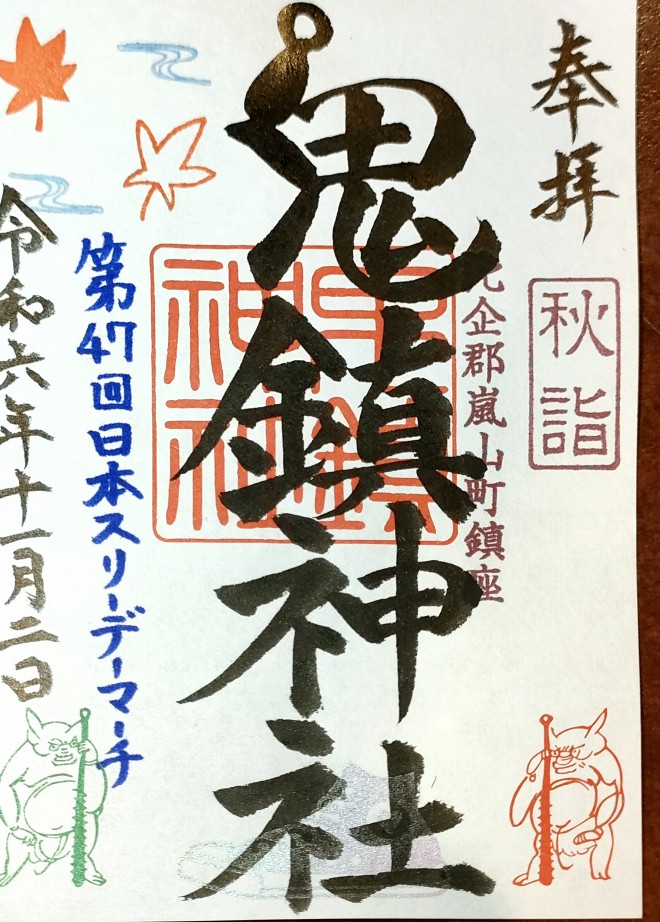 奉拝
秋詣
比企郡嵐山町鎮座
鬼鎮神社
鬼鎮神社
第47回日本スリーデーマーチ
令和六年十一月二日